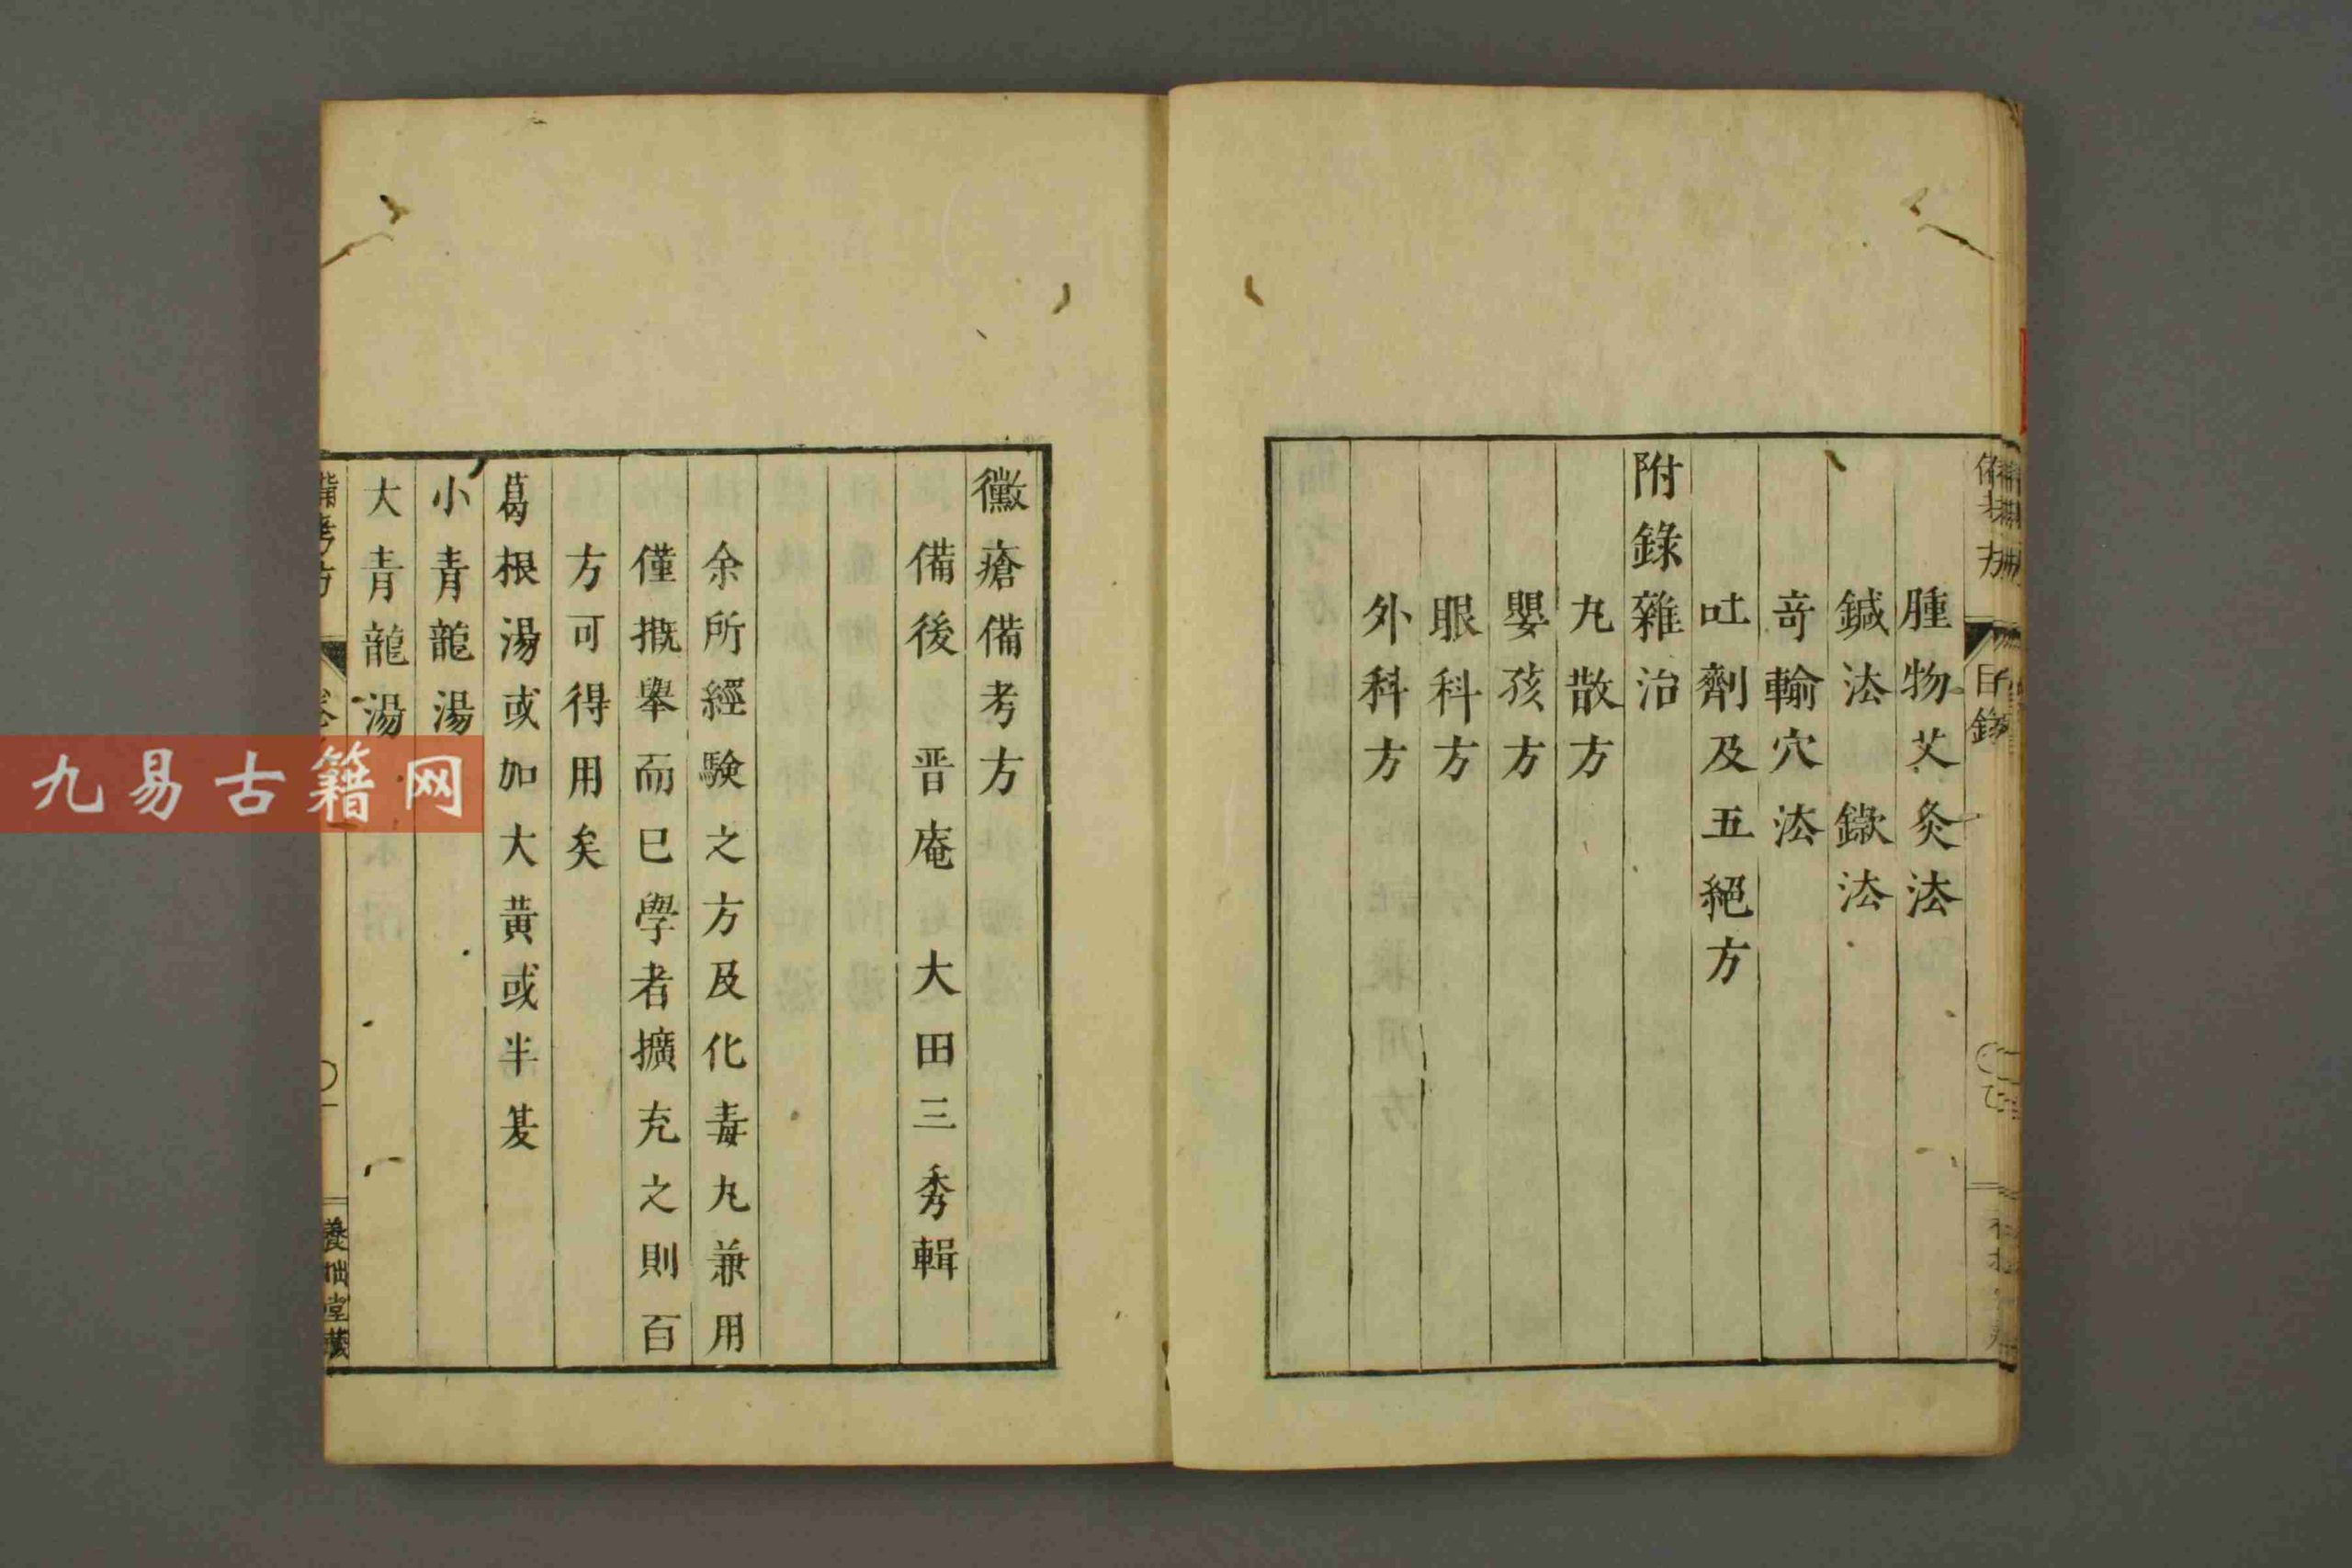 腫物艾灸法
鍼法 鐓法
竒輸穴法
吐劑及五絕方
附錄雜治
丸散方
嬰孩方
眼科方
外科方
黴瘡備考方
備後 晋庵 大田三秀輯
余所經驗之方及化毒丸兼用
僅摡舉而已學者擴充之則百
方可得用矣
葛根湯或加大黃或半夏
小青龍湯
大青龍湯
備考方
養拙堂藏
目錄
九易古籍网